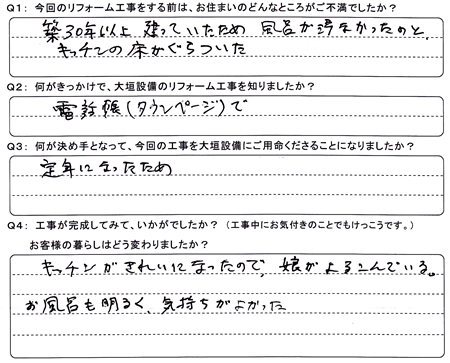 Q1: 今回のリフォーム工事をする前は、お住まいのどんなところがご不満でしたか?
築30年以上 建っていたため 風呂が寒かったのと、
キッチンの床がぐらついた
Q2: 何がきっかけで、大垣設備のリフォーム工事を知りましたか?
電話帳(タウンページ)で
Q3: 何が決め手となって、今回の工事を大垣設備にご用命くださることになりましたか?
定年になったため
Q4: 工事が完成してみて、いかがでしたか? (工事中にお気付きのことでもけっこうです。)
お客様の暮らしはどう変わりましたか?
キッチンがきれいになったので、娘がよろこんでいる。
お風呂も明るく、気持ちがよかった